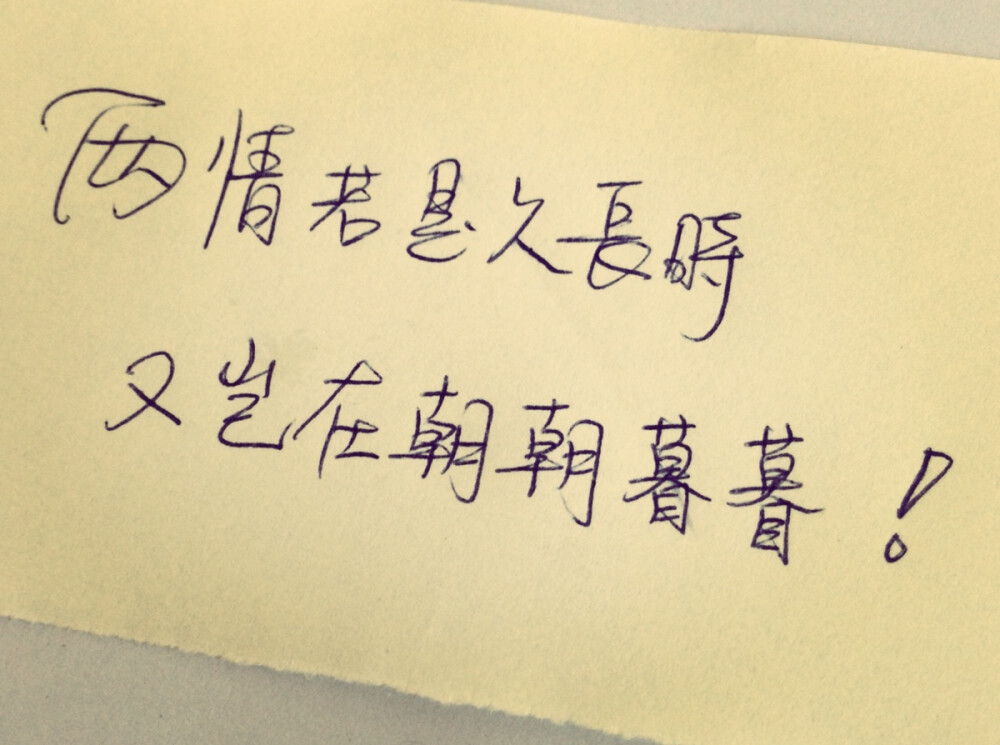 两情若是久長時
又豈在朝朝暮暮！